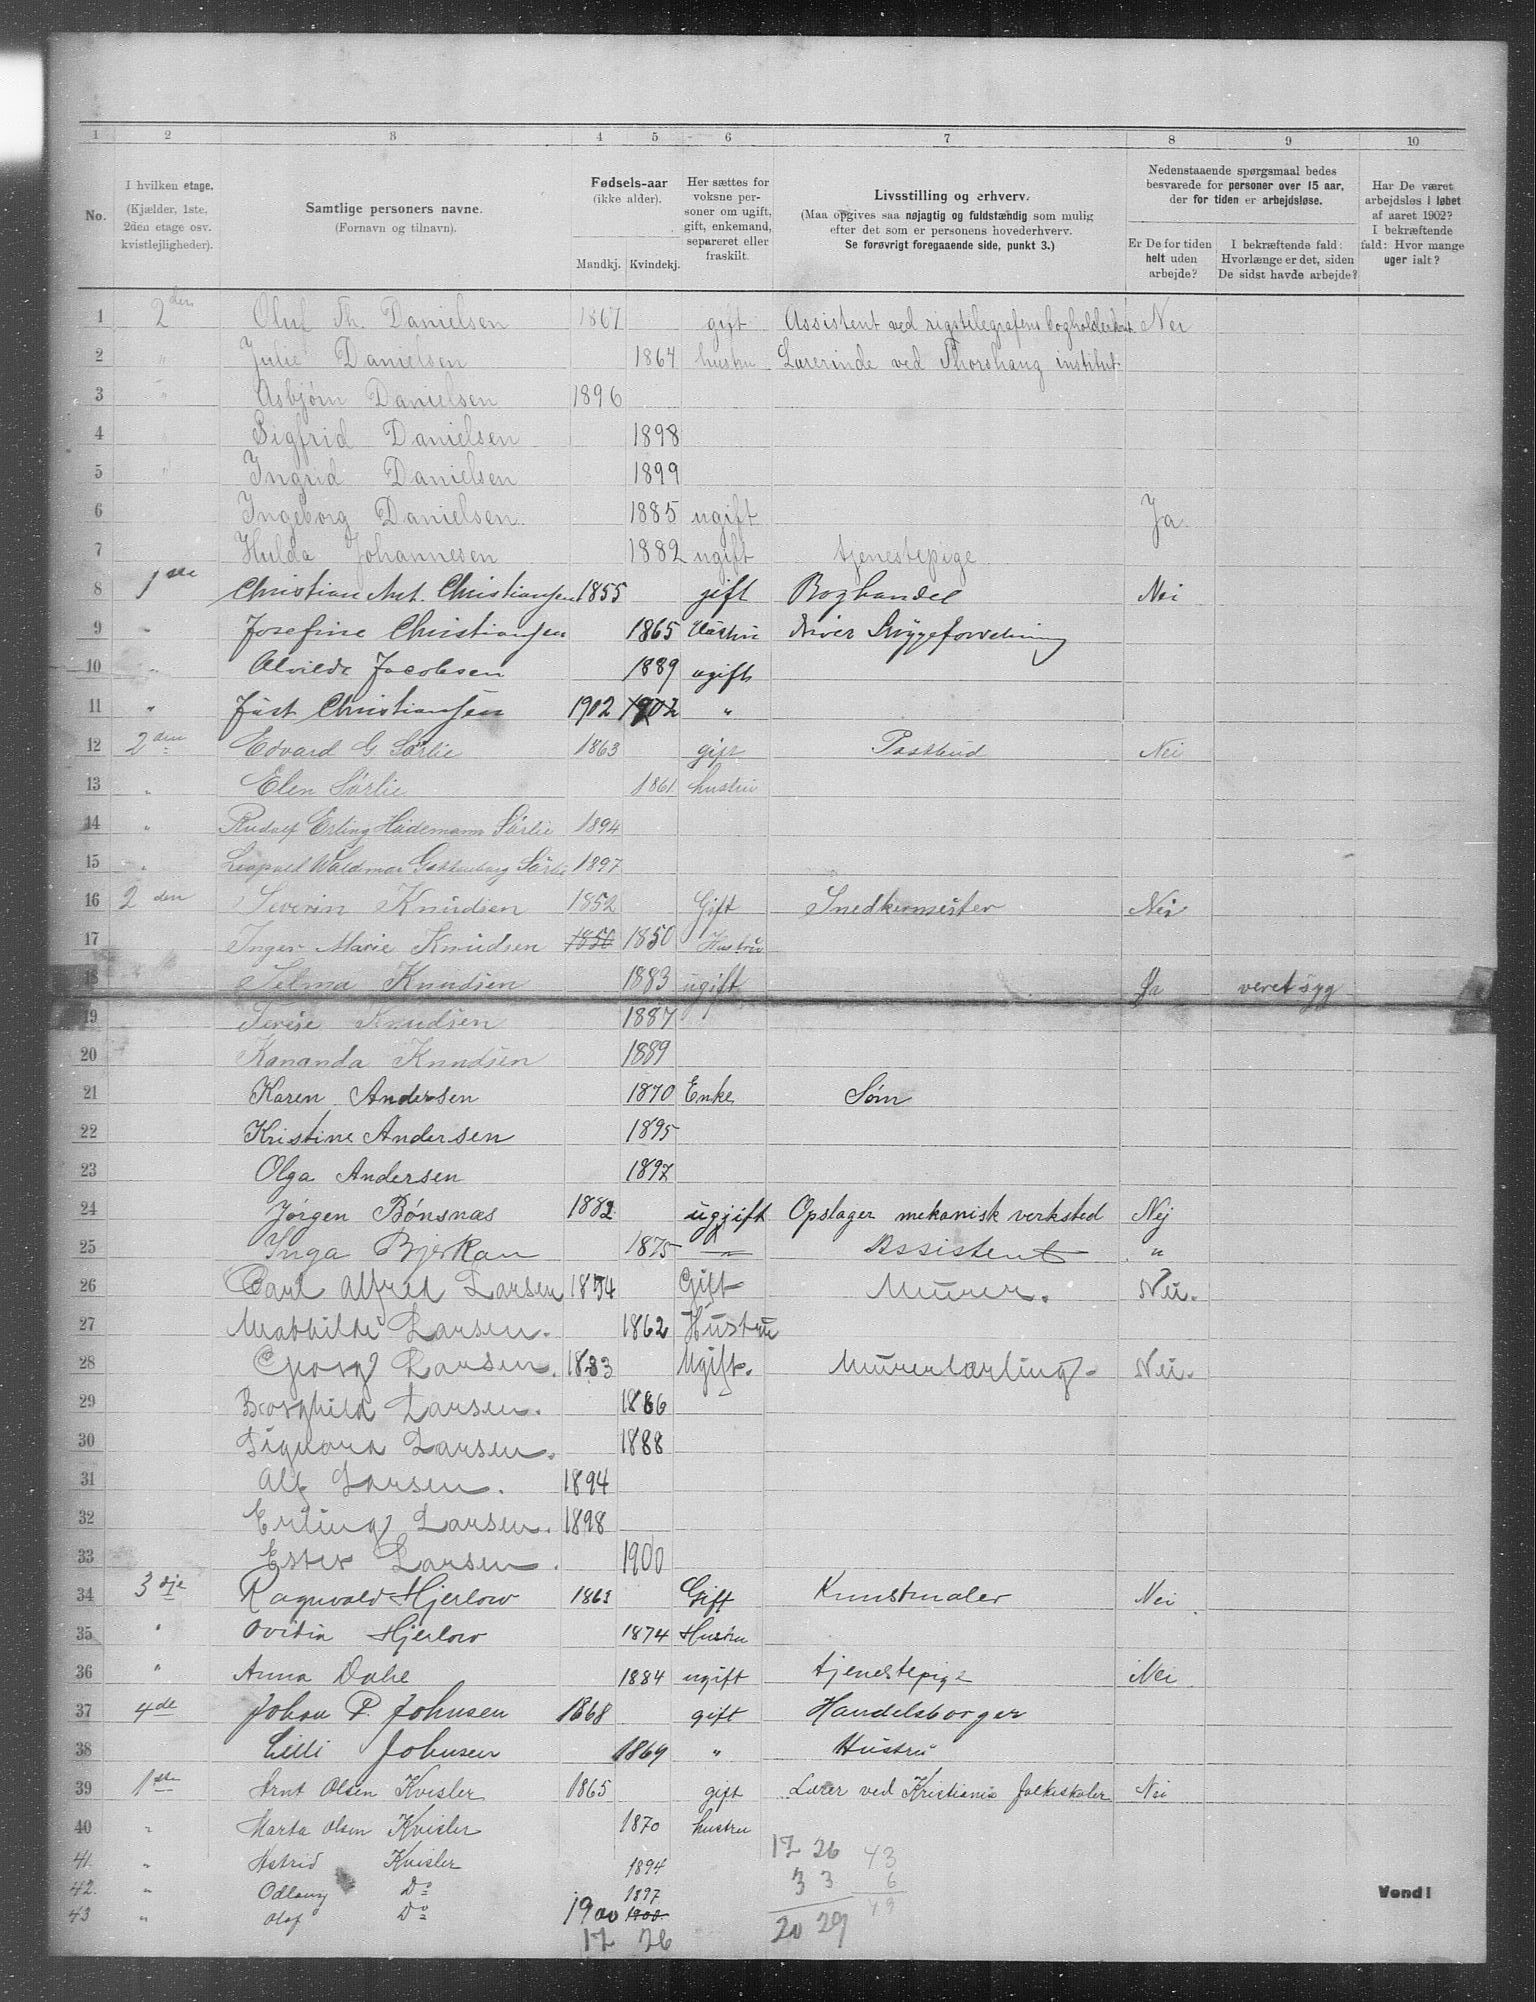 1 2 3 4 5 6 7 8 9 10
No.
I hvilken etage.
(Kjælder, 1ste,
2den etage osv.
kvistlejligheder).
Samtlige personers navne.
(Fornavn og tilnavn).
Fødsels-aar
(ikke alder).
Mandkj. Kvindekj.
Her sættes for
voksne per-
soner om ugift,
gift, enkemand,
separeret eller
fraskilt.
Livsstilling og erhverv.
(Maa opgives saa nøjagtig og fuldstændig som mulig
efter det som er personens hovederhverv.
Se forøvrigt foregaaende side, punkt 3.)
Nedenstaaende spørgsmaal bedes
besvarede for personer over 15 aar,
der for tiden er arbejdsløse.
Er De for tiden
helt uden
arbejde?
I bekræftende fald:
Hvorlænge er det, siden
De sidst havde arbejde?
Har De været
arbejdsløs i løbet
af aaret 1902?
I bekræftende
fald: Hvor mange
uger ialt?
1 2den Oluf Th. Danielsen 1867 gift Assistent ved rigstelegrafens bogholderkont Nei
2 " Julie Danielsen 1864 hustru Lærerinde ved Thorshaug institut.
3 " Asbjørn Danielsen 1896
4 " Sigfrid Danielsen 1898
5 " Ingrid Danielsen 1899
6 Ingeborg Danielsen 1885 ugift Ja
7 Hulda Johannesen 1882 ugift tjenestepige
8 1ste Christian Ant. Christiansen 1855 gift Boghandel Nei
9 " Josefine Christiansen 1865 Hustru driver
10 " Alvilde Jacobsen 1889 ugift
11 " Just Christiansen 1902 1902 "
12 2den Edvard G. Sørlie 1863 gift Postbud Nei
13 " Elen Sørlie 1861 hustru
14 " Rudolf Erling Hademann Sørlie 1894
15 " Leopold Waldmar Sørlie 1897
16 2den Severin Knudsen 1852 Gift Snedkermester Nei
17 Inger Marie Knudsen 1850 1850 Hustru
18 Selma Knudsen 1883 ugift Ja veret syg
19 Terese Knudsen 1887
20 Kananda Knudsen 1889
21 Karen Andersen 1870 Enke Søm
22 Kristine Andersen 1895
23 Olga Andersen 1897
24 Jørgen Bönsnæs 1882 ugjift Opslager mekanisk verksted Nej
25 Inga Bjerkan 1875 —"— Assistent "
26 Carl Alfred Larsen 1854 Gift Murer. Nei.
27 Mathilde Larsen. 1862 Hustru
28 Georg Larsen. 1883 Ugift. Murerlærling. Nei.
29 Borghild Larsen. 1886
30 Signora Larsen. 1888
31 Alf Larsen. 1894
32 Erling Larsen. 1898
33 Ester Larsen. 1900
34 3dje Ragnvald Hjerlow 1863 Gift Kunstmaler Nei
35 " Ovidia Hjerlow 1874 Hustru
36 " Anna Dahl 1884 ugift tjenestepige Nei
37 4de Johan P. Johnsen 1868 gift Handelsborger
38 Lilli Johnsen 1869 " Hustru
39 1ste Arnt Olsen Kvisler 1865 gift Lærer ved Kristiania folkeskoler Nei
40 " Marta Olsen Kvisler 1870 hustru
41. " Astrid Kvisler 1894
42. " Odlaug Do 1897
43 " Olaf Do 1900 1900.
17 26
17 26 43
3 3 6
20 29 49
Vend!